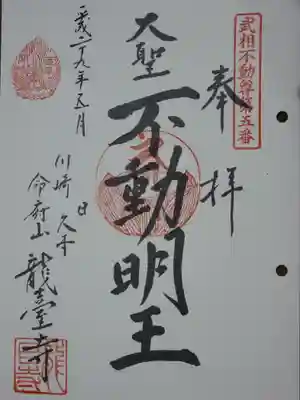 武相不動尊第五番
奉拝
大聖
不動明王
平成二九年五月
日
川崎久本
龍臺寺